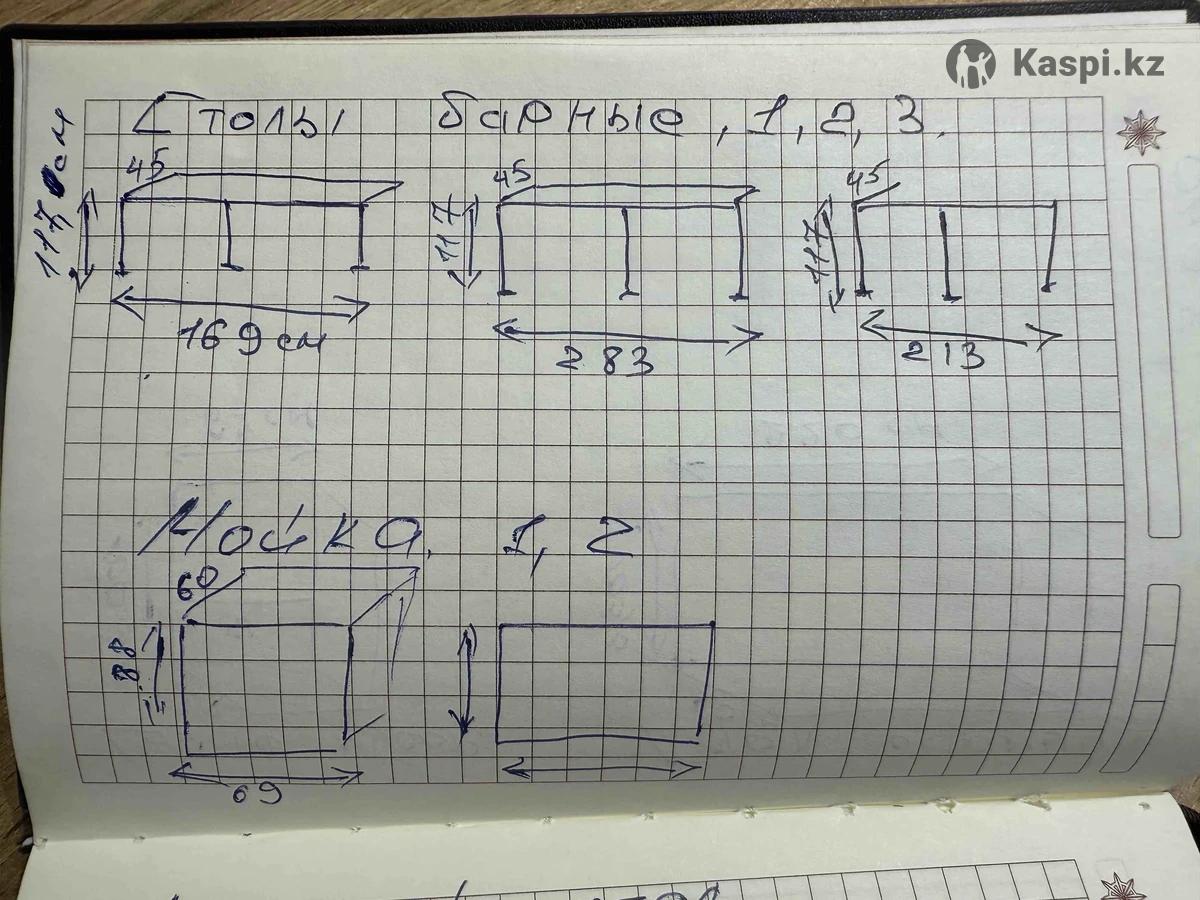 Kaspi.kz
Столы барные, 1, 2, 3.
45 45 45
117 см 117 117
169 см 283 213
Мойка. 1, 2
60
88
69